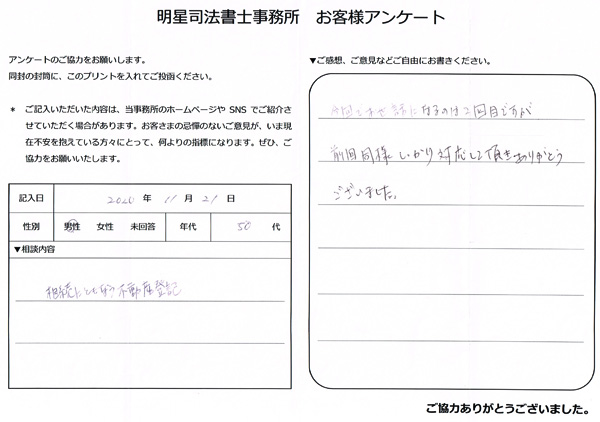 明星司法書士事務所　お客様アンケート
アンケートのご協力をお願いします。
同封の封筒に、このプリントを入れてご投函ください。
* ご記入いただいた内容は、当事務所のホームページや SNS でご紹介さ
せていただく場合があります。お客さまの忌憚のないご意見が、いま現
在不安を抱えている方々にとって、何よりの指標になります。ぜひ、ご
協力をお願いいたします。
記入日 2020 年 11 月 21 日
性別 男性 女性 未回答 年代 50 代
▼相談内容
相続にともなう不動産登記
▼ご感想、ご意見などご自由にお書きください。
今回お世話になるのは2回目ですが
前回同様しっかり対応して頂きありがとう
ございました。
ご協力ありがとうございました。